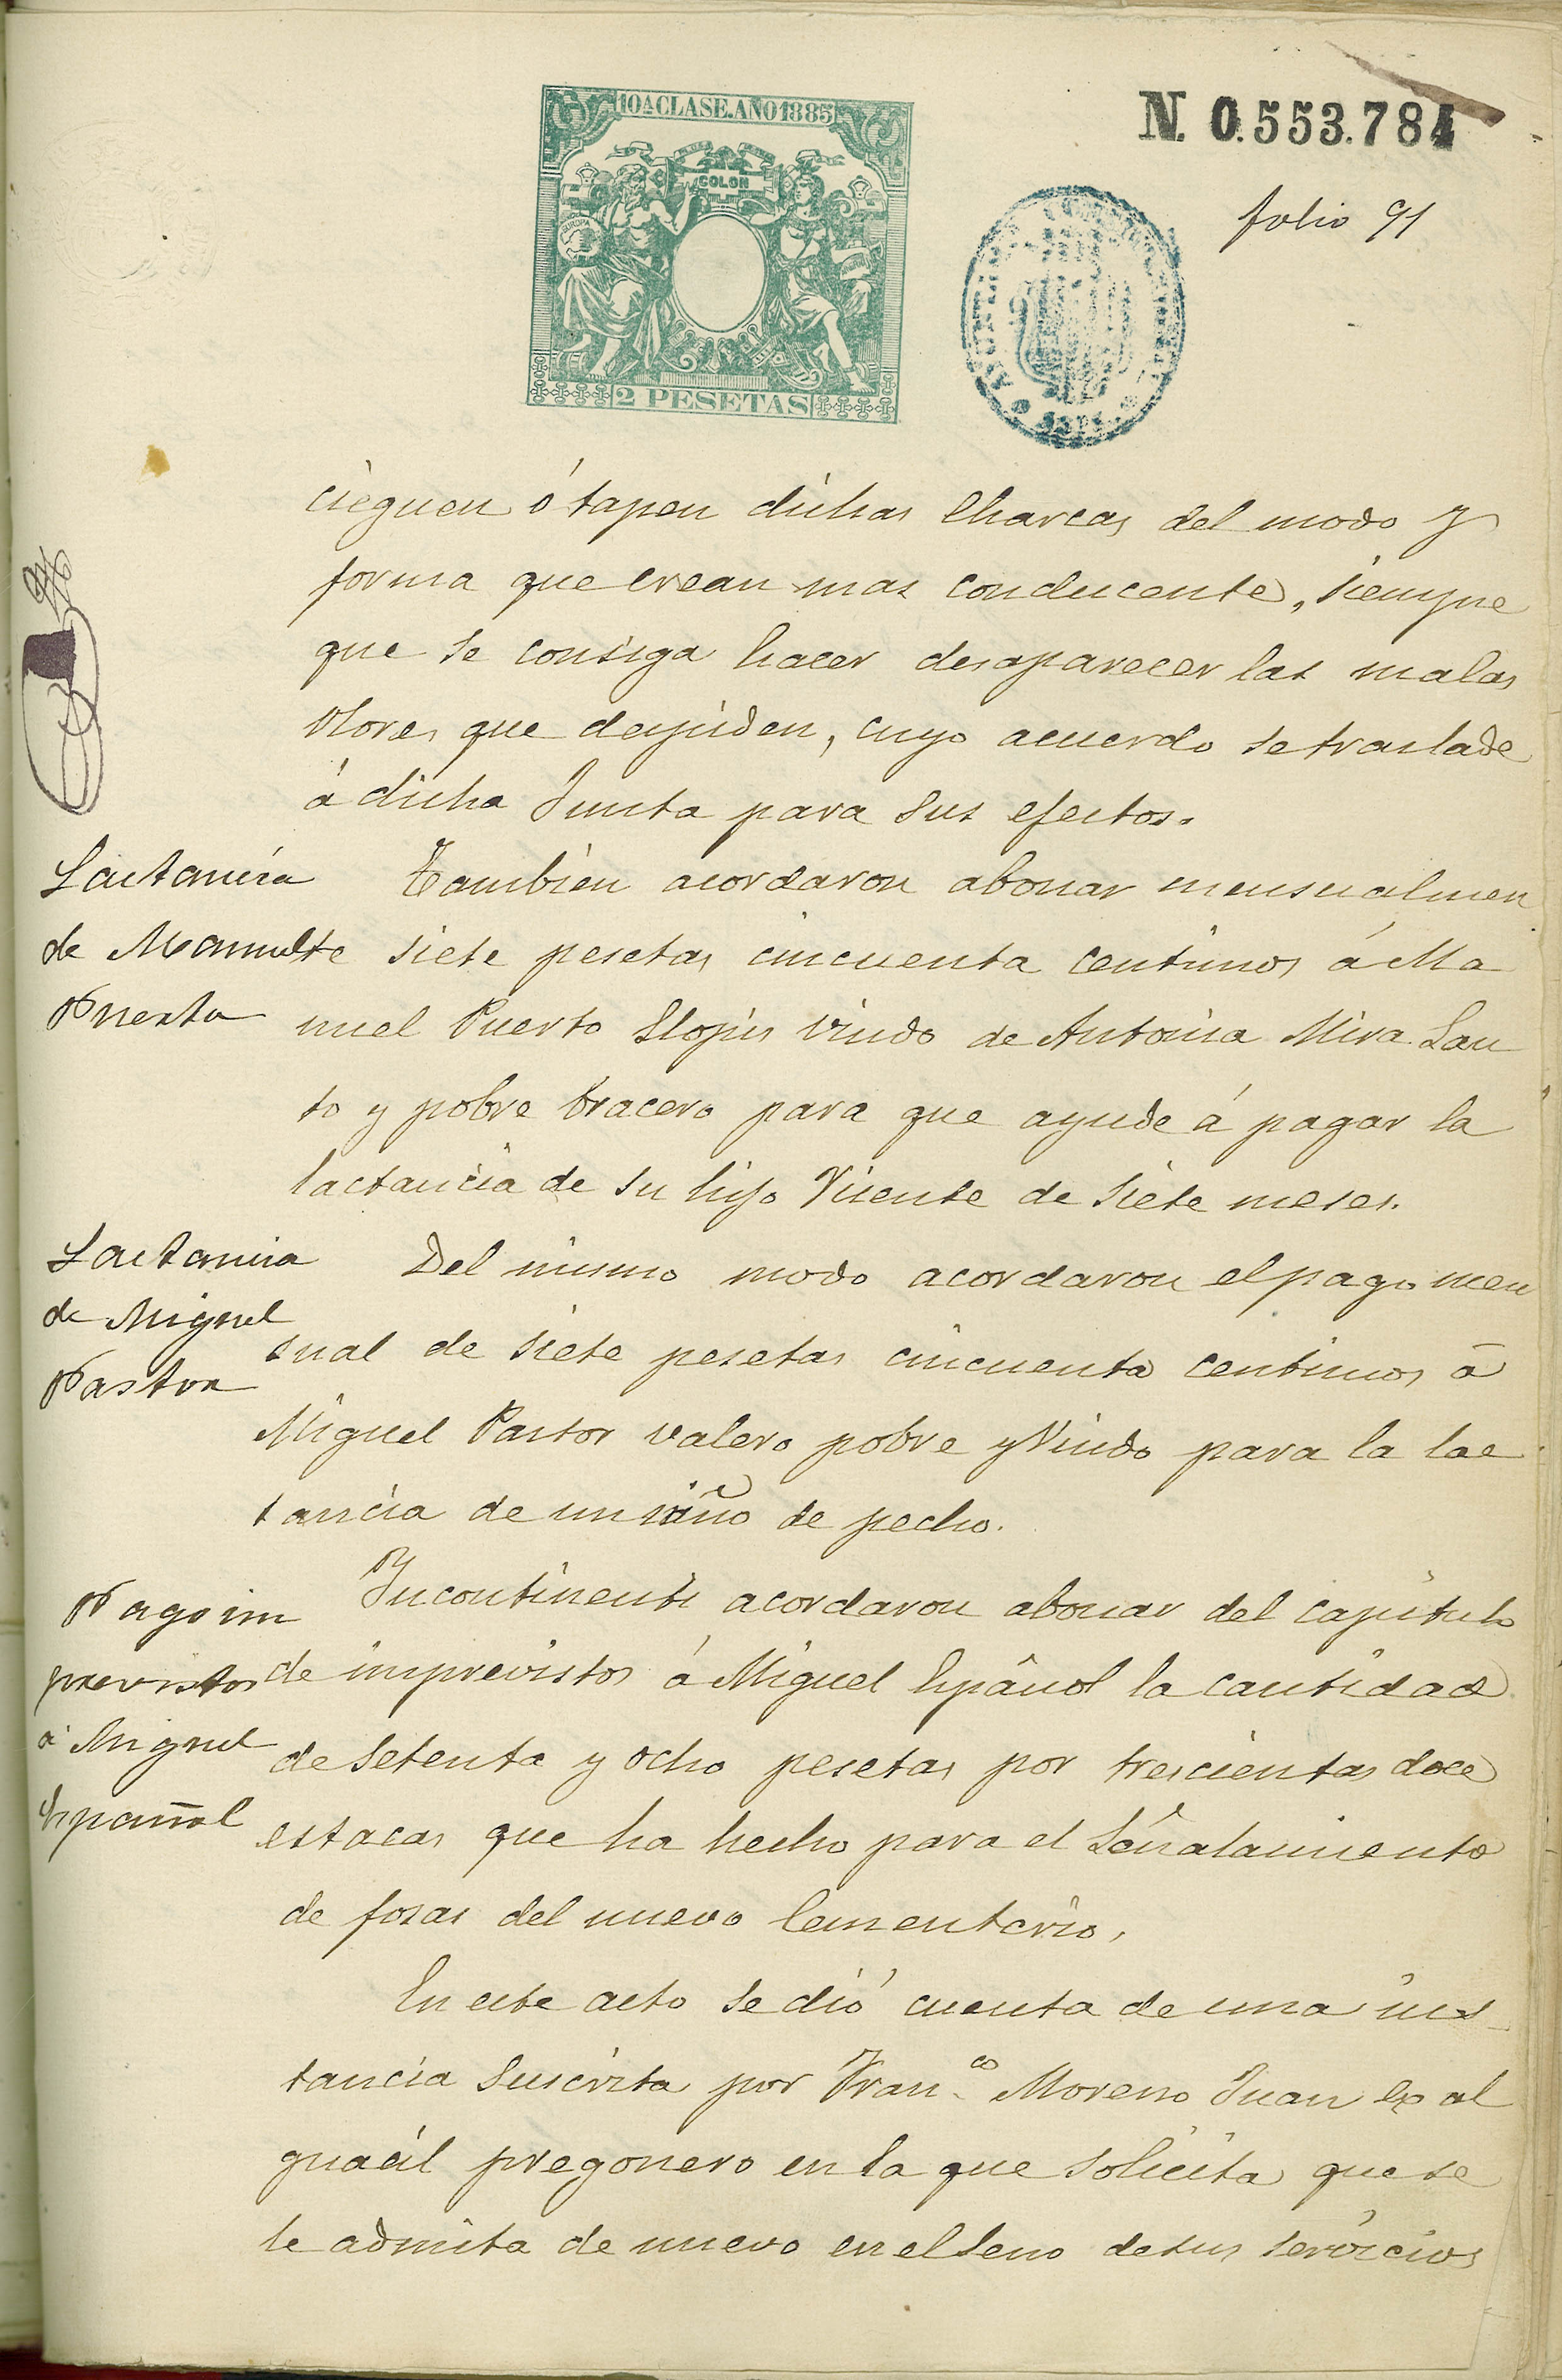 10ª CLASE. AÑO 1885
COLON
EUROPA
2 PESETAS
N. 0.553.784
folio 91
cieguen ó tapen dichas Charcas del modo y
forma que crean mas conducente, siempre
que se consiga hacer desaparecer las malas
olores que despiden, cuyo acuerdo se traslade
á dicha Junta para sus efectos.
Lactancia
de Manuel
Puerto
También acordaron abonar mensualmen
te siete pesetas cincuenta centimos á Ma
nuel Puerto Llopis viudo de Antonia Mira San
to y pobre bracero para que ayude á pagar la
lactancia de su hijo Vicente de siete meses.
Lactancia
de Miguel
Pastor
Del mismo modo acordaron el pago men
sual de siete pesetas cincuenta centimos á
Miguel Pastor Valero pobre y Viudo para la lac
tancia de un niño de pecho.
Pago im
previstos
á Miguel
Español
Incontinenti acordaron abonar del capitulo
de imprevistos á Miguel Español la cantidad
de setenta y ocho pesetas por trescientas doce
estacas que ha hecho para el Señalamiento
de fosas del nuevo Cementerio.
En este acto se dió cuenta de una ins-
tancia suscrita por Fran.co Moreno Juan Ex al
guacil pregonero en la que solicita que se
le admita de nuevo en el seno de sus servicios